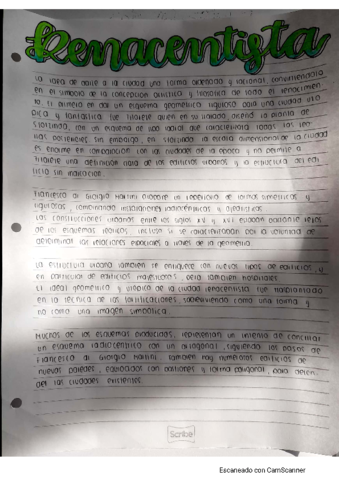 Renacentista
La idea de darle a la ciudad una forma ordenada y racional convirtiendola
en el simbolo de la concepción artística y tecnica de todo el renacimien
to. El primero en dar un esquema geometrico riguroso para una ciudad uto
pica y fantastica fue filarete quien en su tratado, diseñó la planta de
sforzinda, con un esquema de tipo radial que caracterizaría todas las teo
rías posteriores sin embargo, en sforzinda la escala dimensional de la ciudad
es enorme en comparacion con las ciudades de la epoca y no permite a
filarete una definición clara de los edificios urbanos y la estructura del edi
ficio sin indicacion.
Francesco di Giorgio Martini elaboro un repertorio de formas simetricas y
rigurosas, combinando instalaciones radiocéntricas y ajedrezadas
Las construcciones urbanas entre los siglos XV y XVI estaban bastante lejos
de los esquemas teoricos, incluso si se caracterizaban por la voluntad de
determinar las relaciones espaciales a traves de la geometria.
La estructura urbana tambien se enriquece con nuevos tipos de edificios, y
en particular de edificios majestuosos, pero tambien hospitales
El ideal geometrico y utopico de la ciudad renacentista fue trasplantado
en la técnica de las fortificaciones, sobreviviendo como una forma y
no como una imagen simbolica.
Muchos de los esquemas elaborados, representan un intento de conciliar
un esquema radiocentrico con un octagonal, siguiendo los pasos de
Francesco di Giorgio Martini, tambien hay numerosos edificios de
nuevas paredes, equipados con bastiones y forma poligonal, para defen
der las ciudades existentes.
Scribe
Escaneado con CamScanner